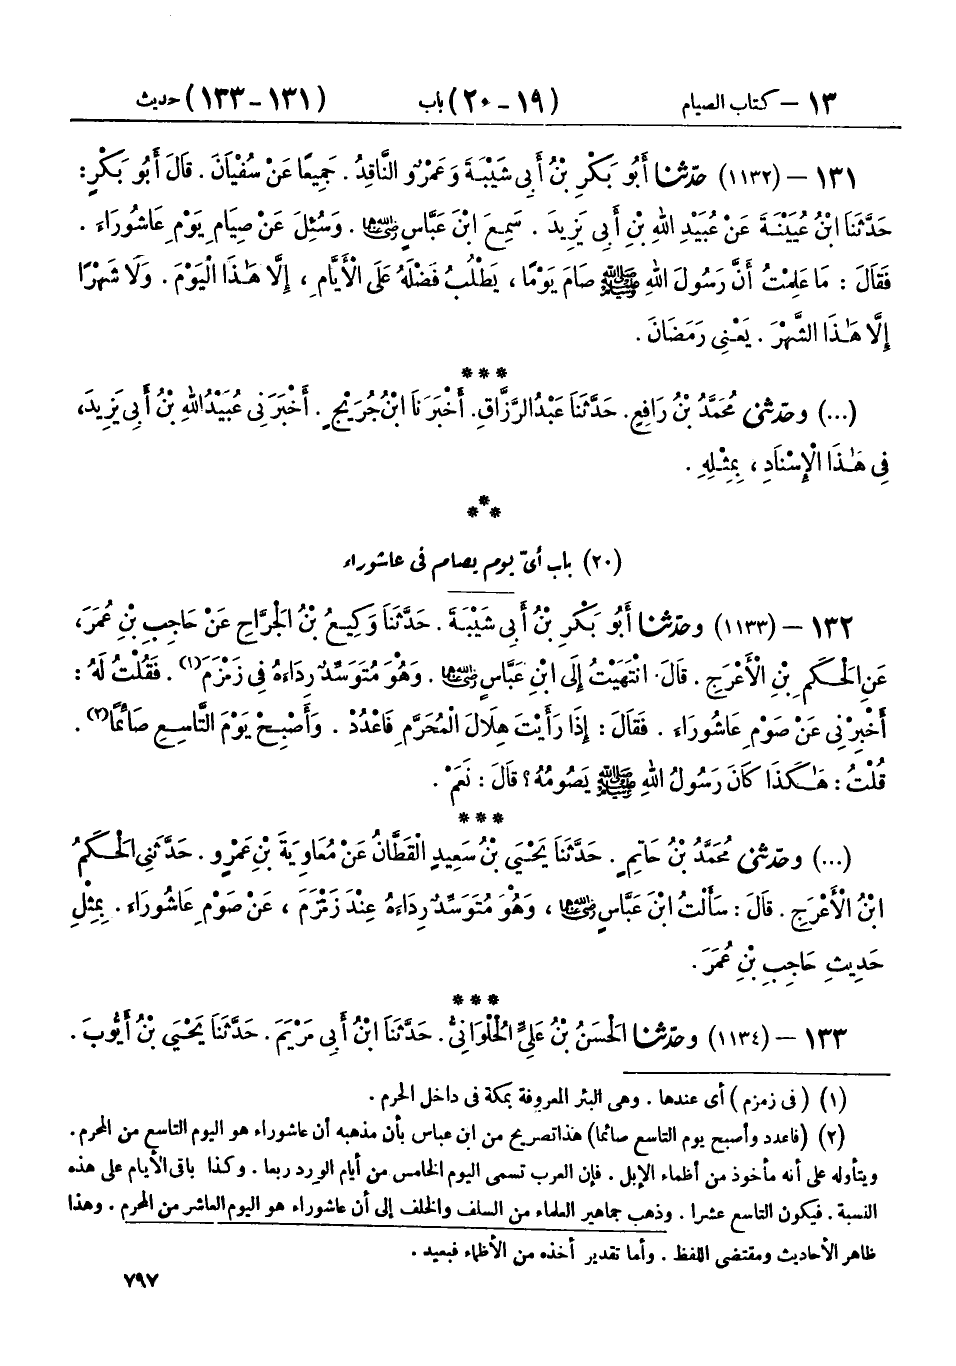 ١٣ – كتاب الصيام (١٩ - ٢٠) باب (١٣١ - ١٣٣) حديث
١٣١ – (١١٣٢) حدّثنا أَبُو بَكْرِ بْنُ أَبِي شَيْبَةَ وَعَمْرٌو النَّاقِدُ . جَمِيعًا عَنْ سُفْيَانَ . قَالَ أَبُو بَكْرٍ :
حَدَّثَنَا ابْنُ عُيَيْنَةَ عَنْ عُبَيْدِ اللهِ بْنِ أَبِي يَزِيدَ . سَمِعَ ابْنَ عَبَّاسٍ رضي الله عنهما . وَسُئِلَ عَنْ صِيَامِ يَوْمِ عَاشُورَاءَ .
فَقَالَ : مَا عَلِمْتُ أَنَّ رَسُولَ اللهِ ﷺ صَامَ يَوْمًا ، يَطْلُبُ فَضْلَهُ عَلَى الْأَيَّامِ ، إِلَّا هَٰذَا الْيَوْمَ . وَلَا شَهْرًا
إِلَّا هَٰذَا الشَّهْرَ . يَعْنِي رَمَضَانَ .
***
(...) وحدّثني مُحَمَّدُ بْنُ رَافِعٍ . حَدَّثَنَا عَبْدُ الرَّزَّاقِ . أَخْبَرَنَا ابْنُ جُرَيْجٍ . أَخْبَرَنِي عُبَيْدُ اللهِ بْنُ أَبِي يَزِيدَ ،
فِي هَٰذَا الْإِسْنَادِ ، بِمِثْلِهِ .
***
(٢٠) باب أىّ يوم يصام فى عاشوراء
١٣٢ – (١١٣٣) وحدّثنا أَبُو بَكْرِ بْنُ أَبِي شَيْبَةَ . حَدَّثَنَا وَكِيعُ بْنُ الْجَرَّاحِ عَنْ حَاجِبِ بْنِ عُمَرَ ،
عَنِ الْحَكَمِ بْنِ الْأَعْرَجِ . قَالَ : انْتَهَيْتُ إِلَى ابْنِ عَبَّاسٍ رضي الله عنهما . وَهُوَ مُتَوَسِّدٌ رِدَاءَهُ فِي زَمْزَمَ(١) . فَقُلْتُ لَهُ :
أَخْبِرْنِي عَنْ صَوْمِ عَاشُورَاءَ . فَقَالَ : إِذَا رَأَيْتَ هِلَالَ الْمُحَرَّمِ فَاعْدُدْ . وَأَصْبِحْ يَوْمَ التَّاسِعِ صَائِمًا(٢) .
قُلْتُ : هَٰكَذَا كَانَ رَسُولُ اللهِ ﷺ يَصُومُهُ ؟ قَالَ : نَعَمْ .
***
(...) وحدّثني مُحَمَّدُ بْنُ حَاتِمٍ . حَدَّثَنَا يَحْيَىٰ بْنُ سَعِيدٍ الْقَطَّانُ عَنْ مُعَاوِيَةَ بْنِ عَمْرٍو . حَدَّثَنِي الْحَكَمُ
ابْنُ الْأَعْرَجِ . قَالَ : سَأَلْتُ ابْنَ عَبَّاسٍ رضي الله عنهما ، وَهُوَ مُتَوَسِّدٌ رِدَاءَهُ عِنْدَ زَمْزَمَ ، عَنْ صَوْمِ عَاشُورَاءَ . بِمِثْلِ
حَدِيثِ حَاجِبِ بْنِ عُمَرَ .
***
١٣٣ – (١١٣٤) وحدّثنا الْحَسَنُ بْنُ عَلِيٍّ الْحُلْوَانِيُّ . حَدَّثَنَا ابْنُ أَبِي مَرْيَمَ . حَدَّثَنَا يَحْيَى بْنُ أَيُّوبَ .
(١) ( فى زمزم ) أى عندها . وهى البئر المعروفة بمكة فى داخل الحرم .
(٢) (فاعدد وأصبح يوم التاسع صائما) هذا تصريح من ابن عباس بأن مذهبه أن عاشوراء هو اليوم التاسع من المحرم .
ويتأوله على أنه مأخوذ من أظماء الإبل . فإن العرب تسمى اليوم الخامس من أيام الورد ربعا . وكذا باقى الأيام على هذه
النسبة . فيكون التاسع عشرا . وذهب جماهير العلماء من السلف والخلف إلى أن عاشوراء هو اليوم العاشر من المحرم . وهذا
ظاهر الأحاديث ومقتضى اللفظ . وأما تقدير أخذه من الأظماء فبعيد .
٧٩٧